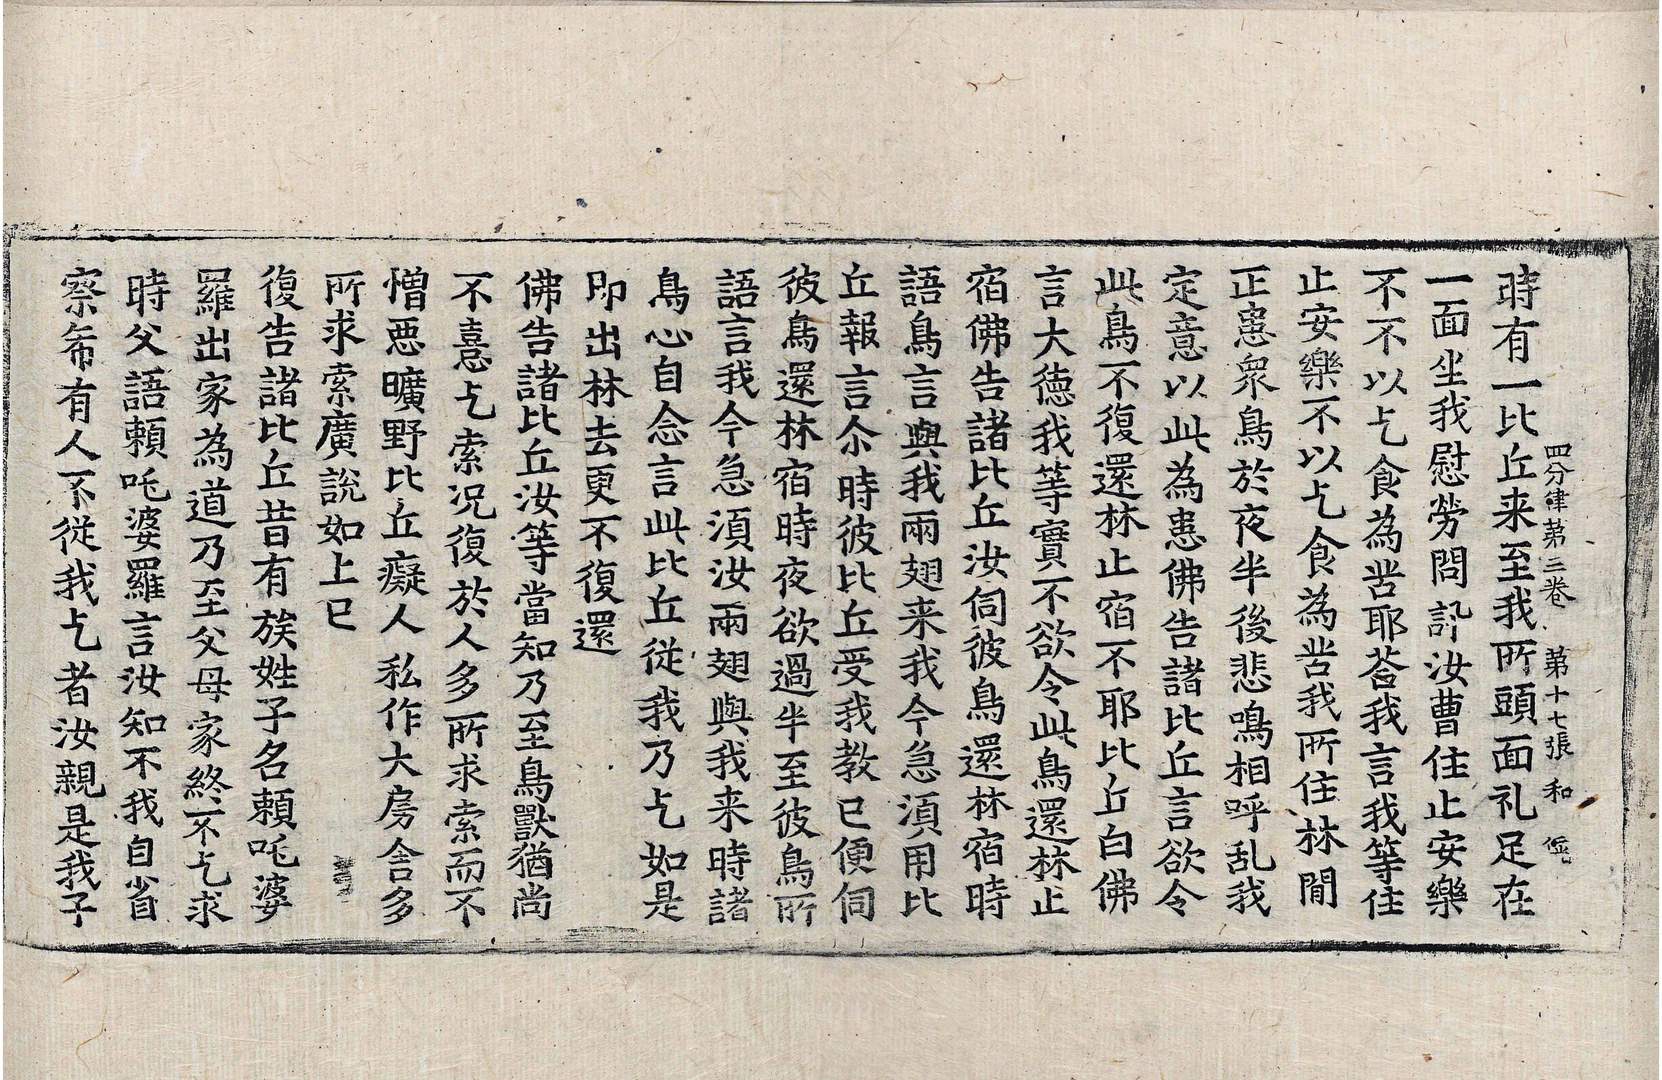 四分律第三卷 第十七張 和
時有一比丘来至我所頭面礼足在
一面坐我慰勞問訊汝曹住止安樂
不不以乞食為苦耶荅我言我等住
止安樂不以乞食為苦我所住林間
正患衆鳥於夜半後悲鳴相呼乱我
定意以此為患佛告諸比丘言欲令
此鳥不復還林止宿不耶比丘白佛
言大德我等實不欲令此鳥還林止
宿佛告諸比丘汝伺彼鳥還林宿時
語鳥言與我兩翅来我今急湏用比
丘報言尒時彼比丘受我教已便伺
彼鳥還林宿時夜欲過半至彼鳥所
語言我今急湏汝兩翅與我来時諸
鳥心自念言此比丘従我乃乞如是
即出林去更不復還
佛告諸比丘汝等當知乃至鳥獸猶尚
不憙乞索况復於人多所求索而不
憎惡曠野比丘癡人私作大房舍多
所求索廣說如上已
復告諸比丘昔有族姓子名頼吒婆
羅出家為道乃至父母家終不乞求
時父語頼吒婆羅言汝知不我自省
察希有人不従我乞者汝親是我子